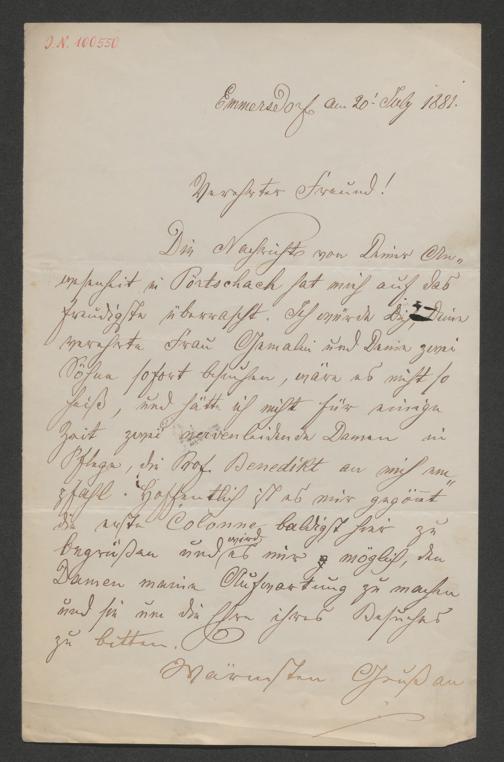 J.N. 100550
Emmersdorf am 20. July 1881.
Verehrter Freund!
Die Nachricht von Deiner An„
wesenheit in Pörtschach hat mich auf das
freudigste überrascht. Ich würde Dich, Deine
verehrte Frau Gemalin und Deine zwei
Söhne sofort besuchen, wäre es nicht so
heiß, und hätte ich nicht für einige
Zeit zwei nervenleidende Damen in
Pflege, die Prof. Benedikt an mich em„
pfahl. Hoffentlich ist es mir gegönnt
die erste Colonne baldigst hier zu
begrüßen und wird es mir möglich, den
Damen meine Aufwartung zu machen
und sie um die Ehre ihres Besuches
zu bitten.
Wärmsten Gruß an